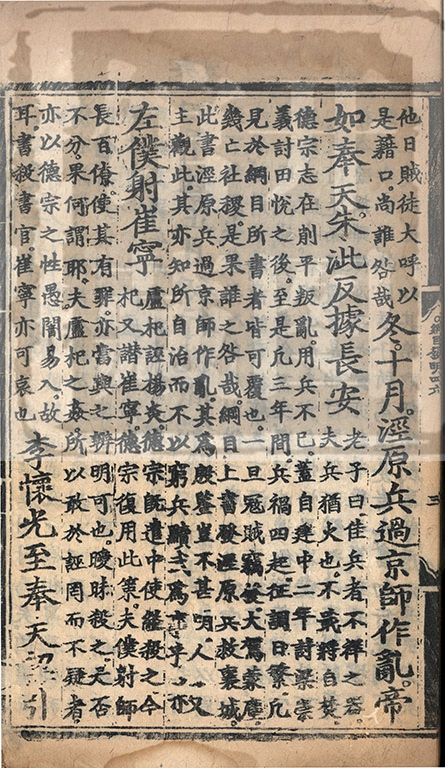 他日賊徒大呼以
是藉口。尚誰咎哉
冬。十月。涇原兵過京師作亂。帝
如奉天。朱泚反據長安
老子曰佳兵者不祥之器
夫兵猶火也。不戢將自焚
德宗志在削平叛亂。用兵不已。蓋自建中二年討梁崇
義討田悅之後。至是凡三年間兵禍四起征調日繁凡
見於綱目所書者皆可覆也。一旦冦賊竊發大駕蒙塵
幾亡社稷。是果誰之咎哉綱目上書發涇原兵救襄城
此書涇原兵過京師作亂。其為殷鑒豈不甚明人又
主觀此。其亦知所自治而不以窮兵黷武為乎亦
左僕射崔寧
盧杞誣楊炎。德宗既遣中使縊殺之今
杞又譖崔寧。德宗復用此策。夫僕射師
長百僚。使其有罪。亦當與之辨明可也。曖昧殺之。天否
不分。果何謂耶。夫盧杞之姦。所以敢於誣罔而不疑者
亦以德宗之性愚闇易入。故
耳書殺書官。崔寧亦可哀也
李懷光至奉天詔引
三